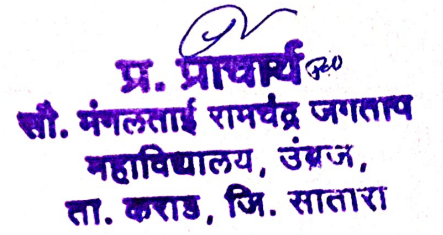 प्र. प्राचार्य
सौ. मंगलताई रामचंद्र जगताप
महाविद्यालय, उंब्रज,
ता. कराड, जि. सातारा